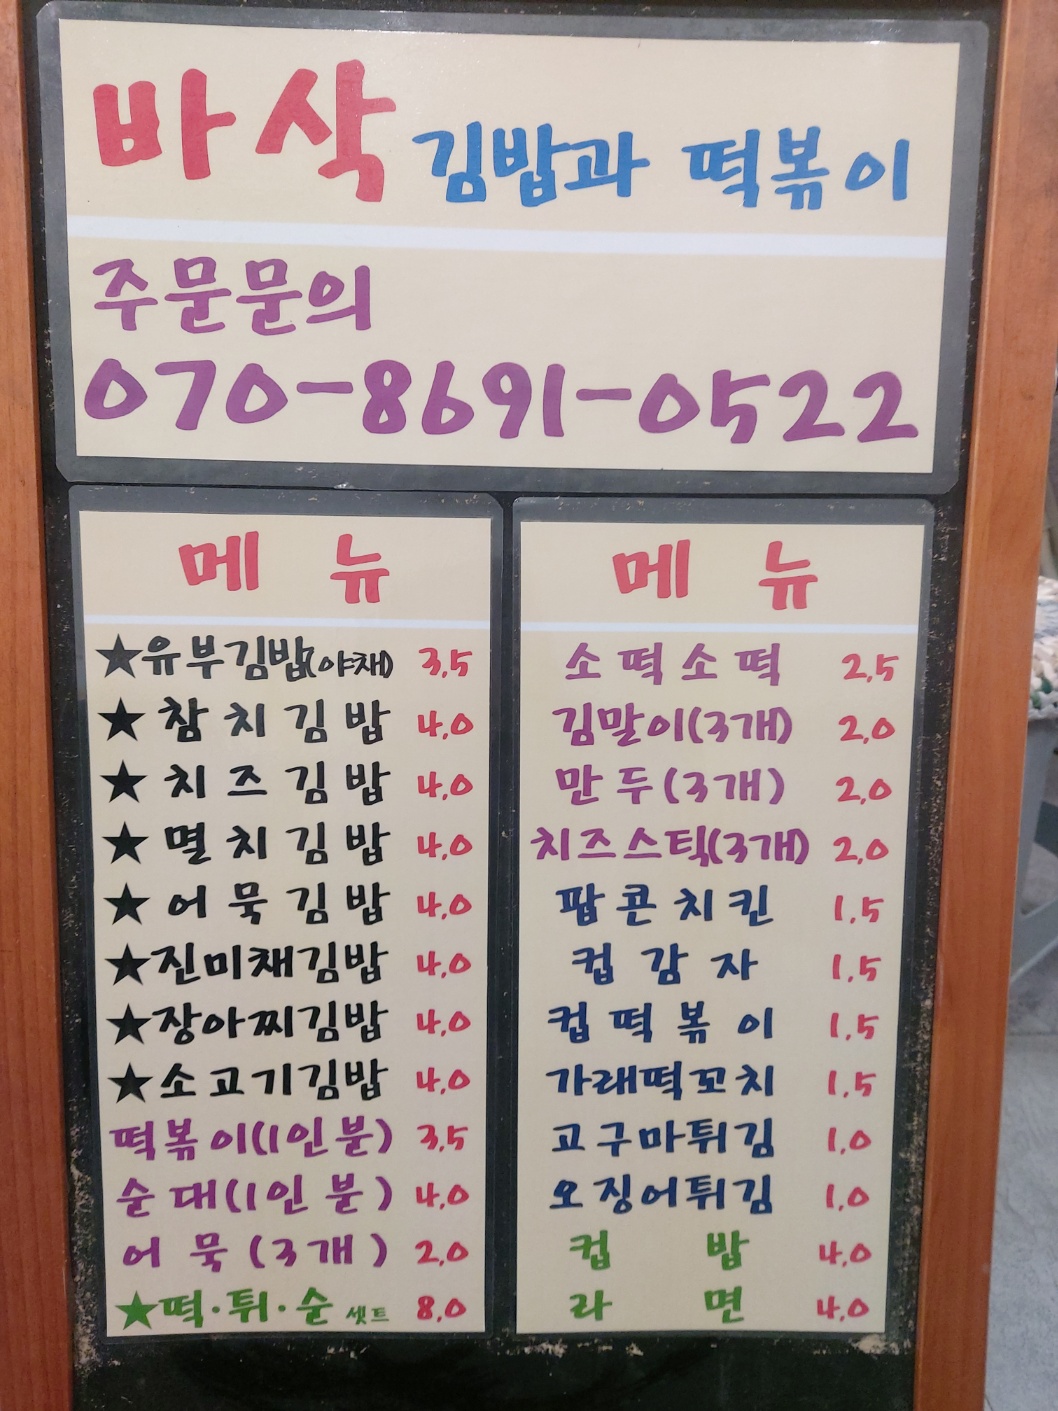 바삭 김밥과 떡볶이
주문문의
070-8691-0522
메 뉴
★유부김밥(야채) 3,5
★ 참치김밥 4,0
★ 치즈김밥 4,0
★ 멸치김밥 4,0
★ 어묵김밥 4,0
★진미채김밥 4,0
★장아찌김밥 4,0
★소고기김밥 4,0
떡볶이(1인분) 3,5
순대(1인분) 4,0
어묵(3개) 2,0
★떡·튀·순 셋트 8,0
메 뉴
소떡소떡 2,5
김말이(3개) 2,0
만두(3개) 2,0
치즈스틱(3개) 2,0
팝콘치킨 1,5
컵감자 1,5
컵떡볶이 1,5
가래떡꼬치 1,5
고구마튀김 1,0
오징어튀김 1,0
컵 밥 4,0
라 면 4,0